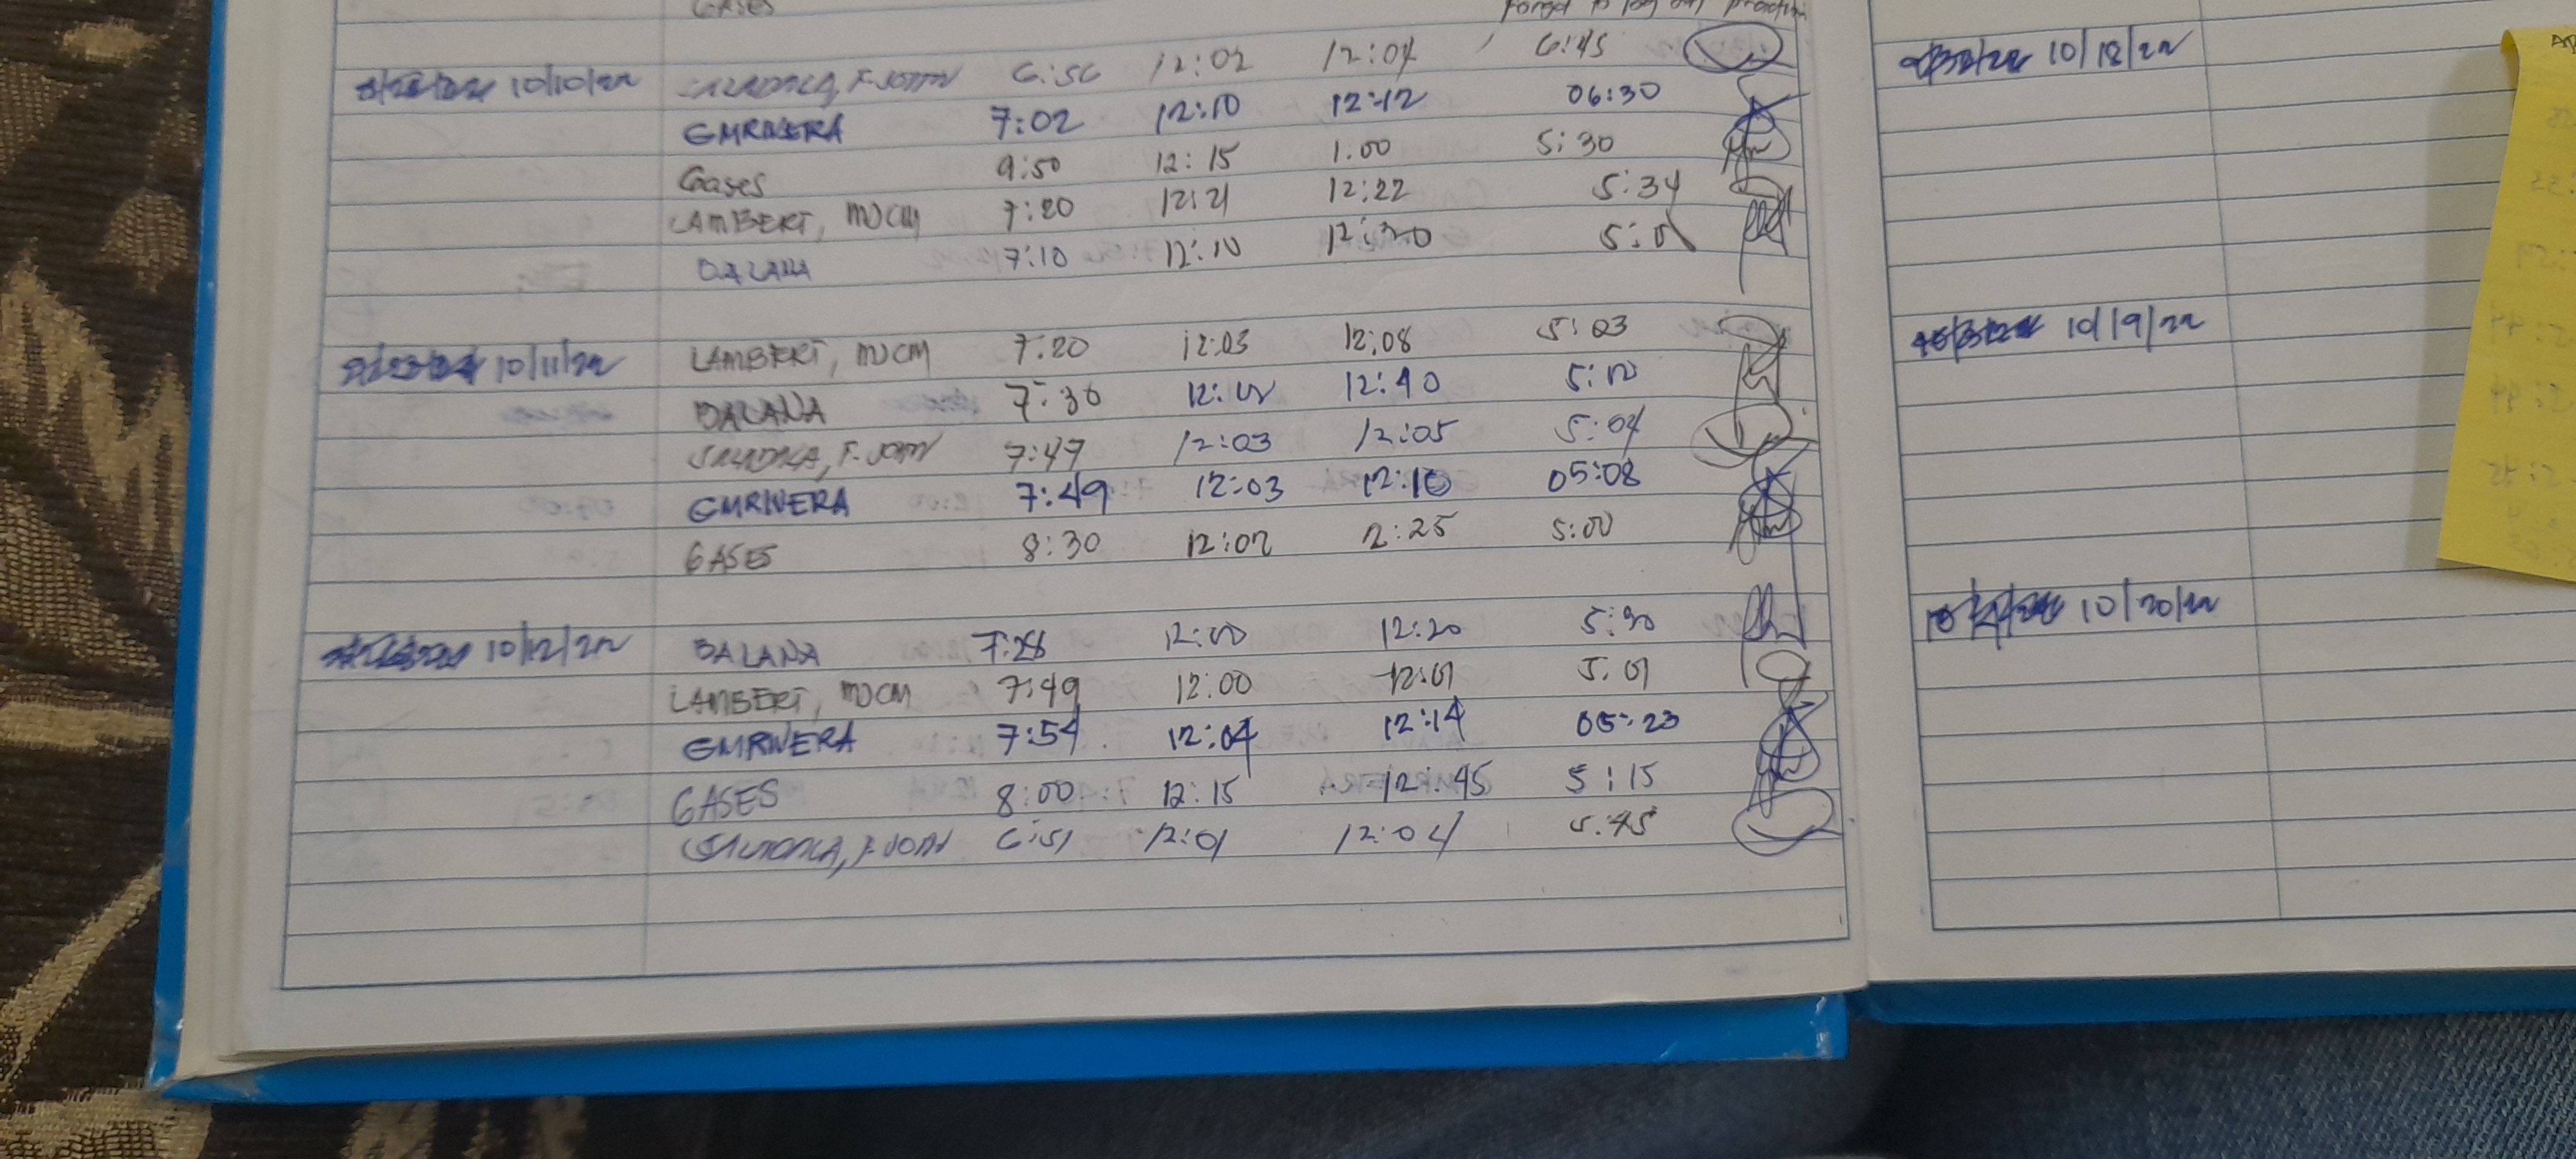 GASES
Forgot to log out
10/10/22 F. JOHN 6:56 12:02 12:04 6:45
GMRIVERA 7:02 12:10 12:12 06:30
Gases 9:50 12:15 1:00 5:30
LAMBERT, MJCM 7:20 12:21 12:22 5:34
BALANA 7:10 12:10 12:30
10/11/22 LAMBERT, MJCM 7:20 12:03 12:08 5:03
BALANA 7:36 12:40 5:10
F. JOHN 7:47 12:03 12:05 5:04
GMRIVERA 7:49 12:03 12:10 05:08
GASES 8:30 12:02 12:25 5:00
10/12/22 BALANA 7:28 12:00 12:20 5:30
LAMBERT, MJCM 7:49 12:00 12:01 5:01
GMRIVERA 7:54 12:04 12:14 05:23
GASES 8:00 12:15 12:45 5:15
F. JOHN 6:51 12:01 12:04 5:45
10/18/22
10/19/22
10/20/22